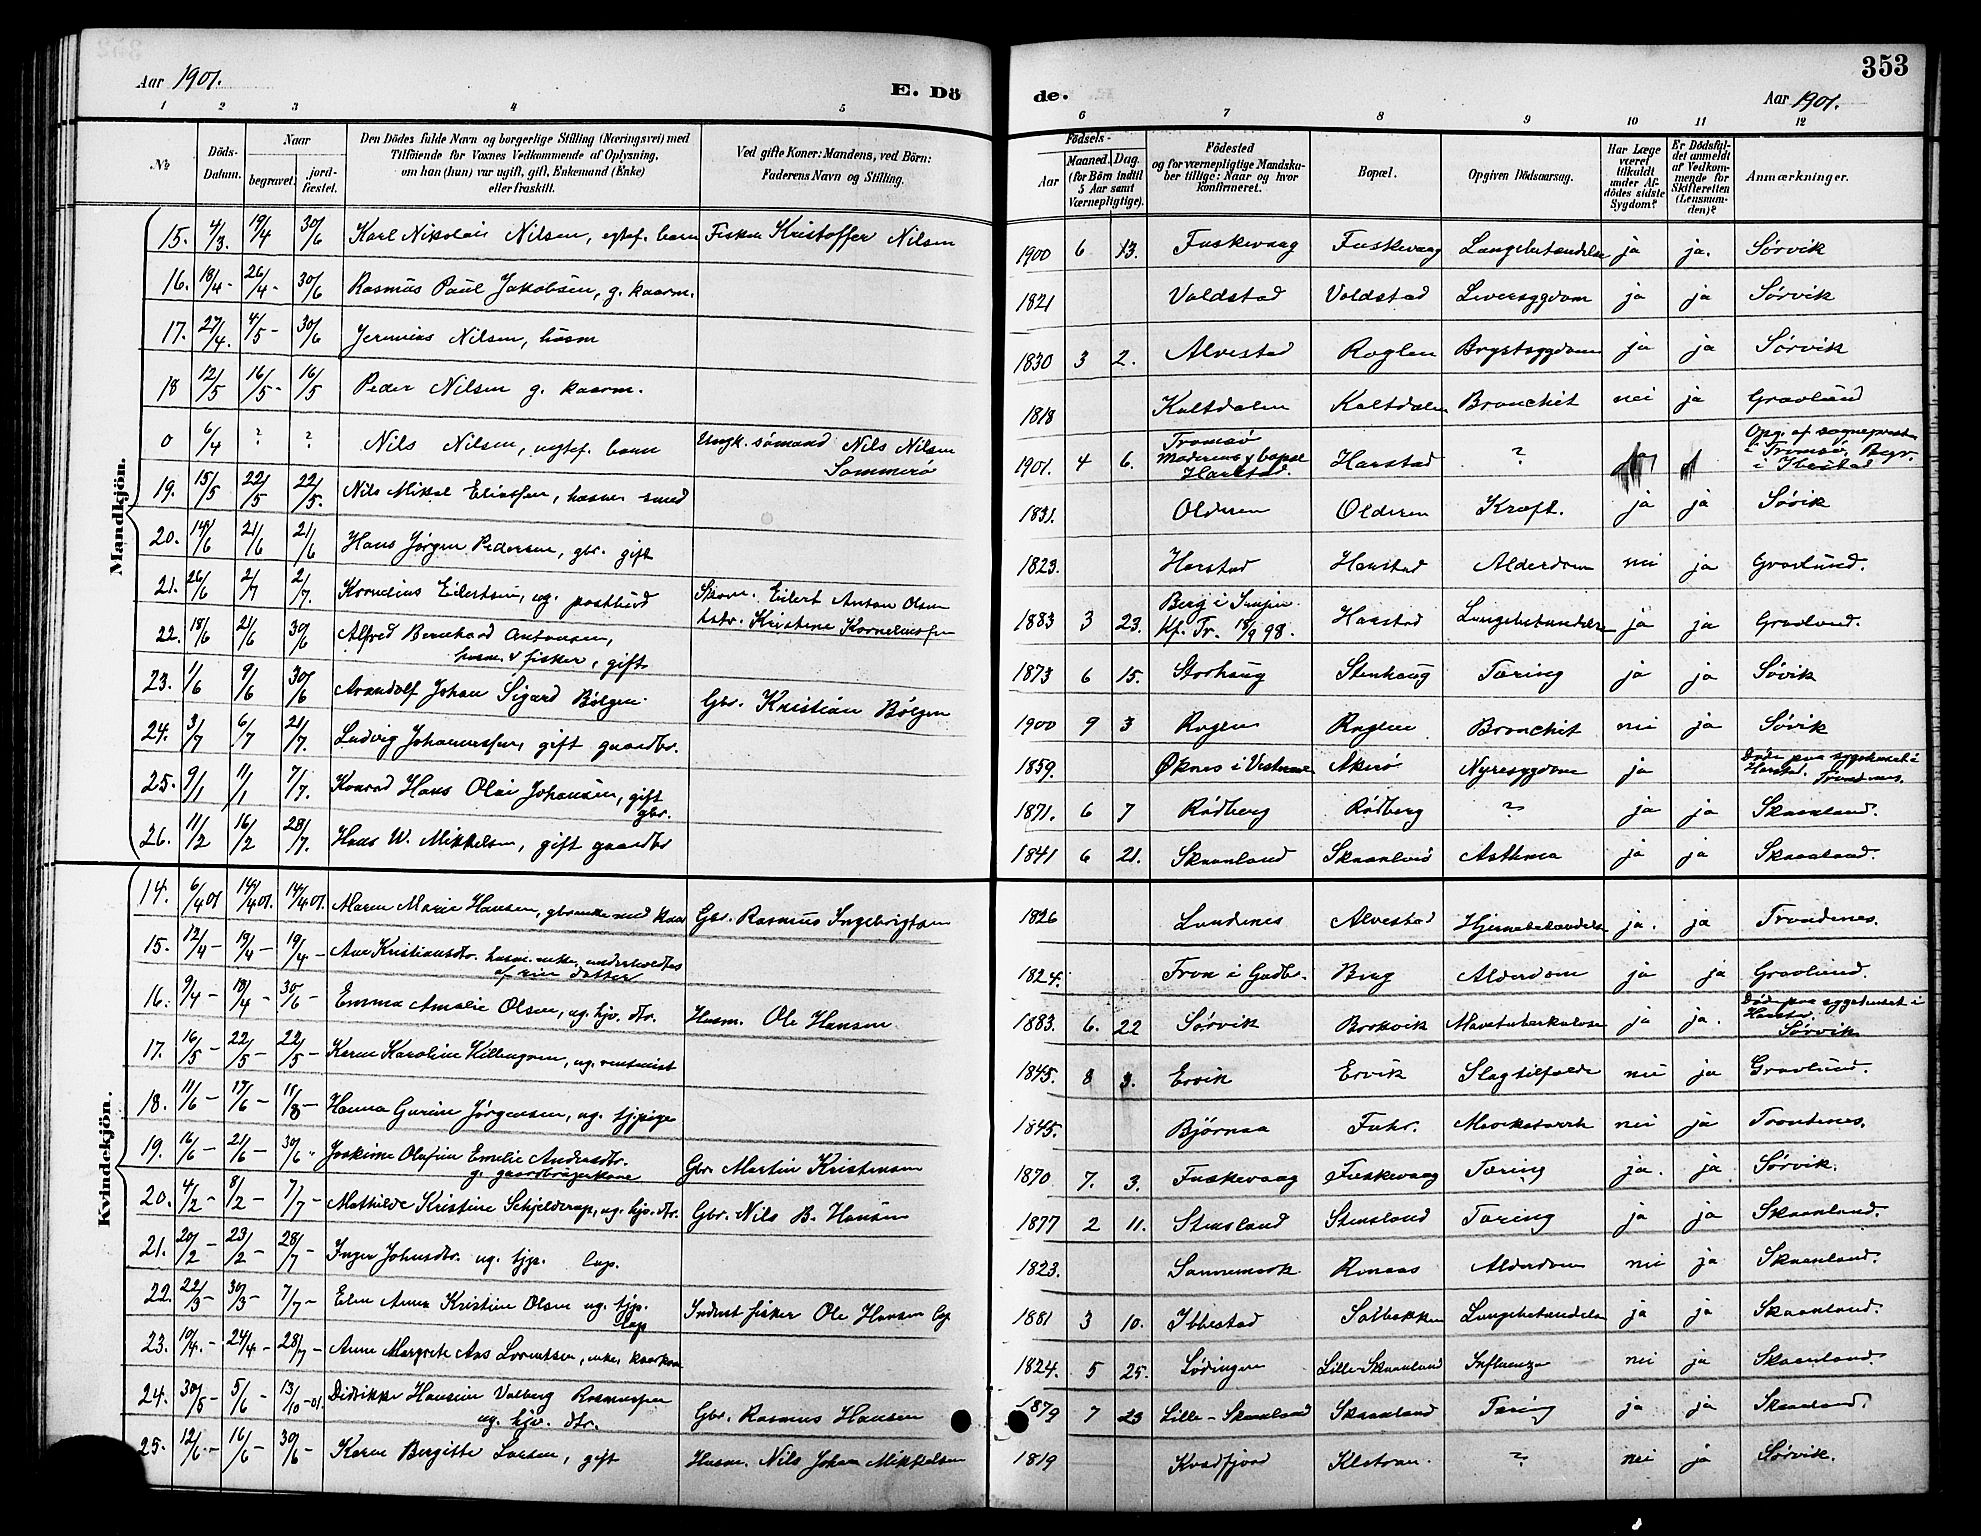 353
Aar 1901.
E. Dö
de.
Aar 1901.
1 2 3 4 5
6 7 8 9 10 11 12
№
Döds-Datum.
Naar
begravet.
jord-fæstet.
Den Dödes fulde Navn og borgerlige Stilling (Næringsvei) med
Tilföiende for Voxnes Vedkommende af Oplysning,
om han (hun) var ugift, gift, Enkemand (Enke)
eller fraskilt.
Ved gifte Koner: Mandens, ved Börn:
Faderens Navn og Stilling.
Födsels-
Aar
Maaned. Dag.
(for Börn indtil
5 Aar samt
Værnepligtige).
Födested
og for værnepligtige Mandska-
ber tillige: Naar og hvor
konfirmeret.
Bopæl.
Opgiven Dödsaarsag.
Har Læge
været
tilkaldt
under Af-
dödes sidste
Sygdom?
Er Dödsfal-
det anmeldt
af Vedkom-
mende for
Skifteretten
(Lensman-
den)?
Anmærkninger.
Mandkjön.
15. 4/3. 19/4 30/6 Karl Nikolai Nilsen, egtef. barn Fisker Kristoffer Nilsen 1900 6 13. Fuskevaag Fuskevaag Lungebetændelse ja ja. Sørvik
16. 18/4- 26/4- 30/6 Rasmus Paul Jakobsen, g. kaarm. 1821 Voldstad Voldstad Leversygdom ja ja Sørvik
17. 27/4. 4/5- 30/6 Jeremias Nilsen, husm 1830 3 2. Alvestad Roglen Brystsygdom ja ja Sørvik
18 12/5 16/5- 16/5 Peder Nilsen g. kaarm. 1818 Kaltdalen Kaltdalen Bronchit nei ja Gravlund
0 6/4 ? ? Nils Nilsen, uegtef. barn Ungk. sømand Nils Nilsen
Sommerø 1901. 4 6. Tromsø
Moderens bopæl
Harstad. Harstad ? Opg. af sogneprest
i Tromsø, Begr.
i Ibestad
19. 15/5 22/5 22/5. Nils Mikal Eliassen, husm. smed 1831. Olderen Olderen Kræft. ja ja Søvik
20. 14/6 21/6 21/6 Hans Jørgen Pedersen, gbr. gift 1823. Harstad Harstad Alderdom nei ja Gravlund.
21. 26/6 2/7 2/7. Kornelius Eilertsen, ug. postbud Skom. Eilert Anton Olsen
hstr. Kristine Korneliussen 1883 3 23. Berg i Senjen
Kf. Tr. 18/9 98. Harstad Lungebetændelse ja ja Gravlund.
22. 18/6 21/6 30/6 Alfred Bernhard Antonsen,
husm. & fisker, gift 1873 6 15. Storhaug Stenhaug Tæring ja ja Søvik
23. 1/6 9/6 30/6 Arnndolf Johan Sigard Bølgen. Gbr. Kristian Bølgen 1900 9 3 Roglen Roglen Bronchit nei ja Søvik
24. 3/7 6/7 21/7. Ludvig Johannessen, gift gaardbr. 1859. Øknes i Vesteraalen Akerø Nyresygdom ja Døde paa sygehuset i
Harstad. Trondenes.
25. 9/1 11/1 7/7. Konrad Hans Olai Johansen, gift
gbr. 1871. 6 7 Rødberg Rødberg ? ja ja Skaanland.
26. 11/2 16/2 28/7. Hans W. Mikkelsen, gift gaardbr 1841 6 21. Skaanland Skaanland Asthma ja ja Skaanland.
Kvindekjön.
14. 6/4 01 14/4 01. 14/4 01. Maren Marie Hansen, gbrenke med kaar Gbr. Rasmus Ingebrigtsen 1826 Lundenes Alvestad Hjernebetændelse ja. ja Trondenes.
15. 12/4- 19/4- 19/4- Ane Kristiansdtr. husm. enke, underholdtes
af sin datter 1824. Fron i Gudbr. Berg Alderdom ja ja Gravlund.
16. 9/4- 18/4- 30/6- Emma Amalie Olsen, ug. hjv. dtr. Husm. Ole Hansen 1883. 6. 22 Sørvik Brokvik Mavetuberkulose ja ja. Døde paa sygehuset i
Harstad.
Sørvik
17. 16/5- 22/5- 22/5- Karen Karoline Killengreen, ug. rentenist 1845. 8 3. Ervik Ervik Slagtilfælde nei ja Gravlund.
18. 11/6- 17/6- 11/8- Hanna Gurine Jørgensen, ug. tjpige 1845. Bjørnaa Fuhr. nei ja Trondenes.
19. 16/6- 21/6- 30/6" Joakime Olufine Emelie Andersdtr.
g. gaardbrugerkone Gbr Martin Kristensen 1870 7. 3. Fuskevaag Fuskevaag Tæring ja. ja. Sørvik.
20. 4/2- 8/2- 7/7- Mathilde Kristine Schjelderup, ug. hjv. dtr. Gbr. Nils B. Hansen 1877 2 11. Stensland Stensland Tæring ja ja Skaanland.
21. 20/2- 23/2- 28/7- Inger Johnsdtr. ug. tjp. lap. 1823. Sannemark Renaas Alderdom nei ja Skaanland.
22. 22/3- 30/3- 7/7- Elen Anna Kristine Olsen ug. tjp.
lap Inderst fisker Ole Hansen lap 1881 3 10. Ibbestad Solbakken Lungebetændelse ja ja Skaanland.
23. 10/4.- 24/4- 28/7- Anne Margrete Aas Lorentsen, enke, kaarkone 1824. 5 25. Lødingen Lille-Skaanland Influenza nei ja Skaanland.
24. 30/5- 5/6- 13/10-01. Didrikke Hansine Valberg Rasmussen
ug. hjv. dtr. Gbr. Rasmus Hansen 1879 7 23 Lille-Skaanland Skaanland Tæring ja ja Skaanland.
25. 12/6.- 16/6- 30/6- Karen Bergitte Larsen, gift Husm. Nils Johan Mikkelsen 1819 Kvædfjord Klatran. ? nei ja Sørvik.